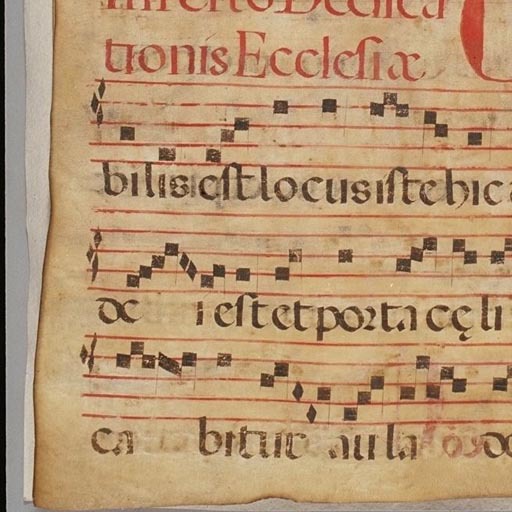 In festo Dedica
tionis Ecclesiæ
bilis est locus iste hic
de i est et porta cęli
ca bitur au la de